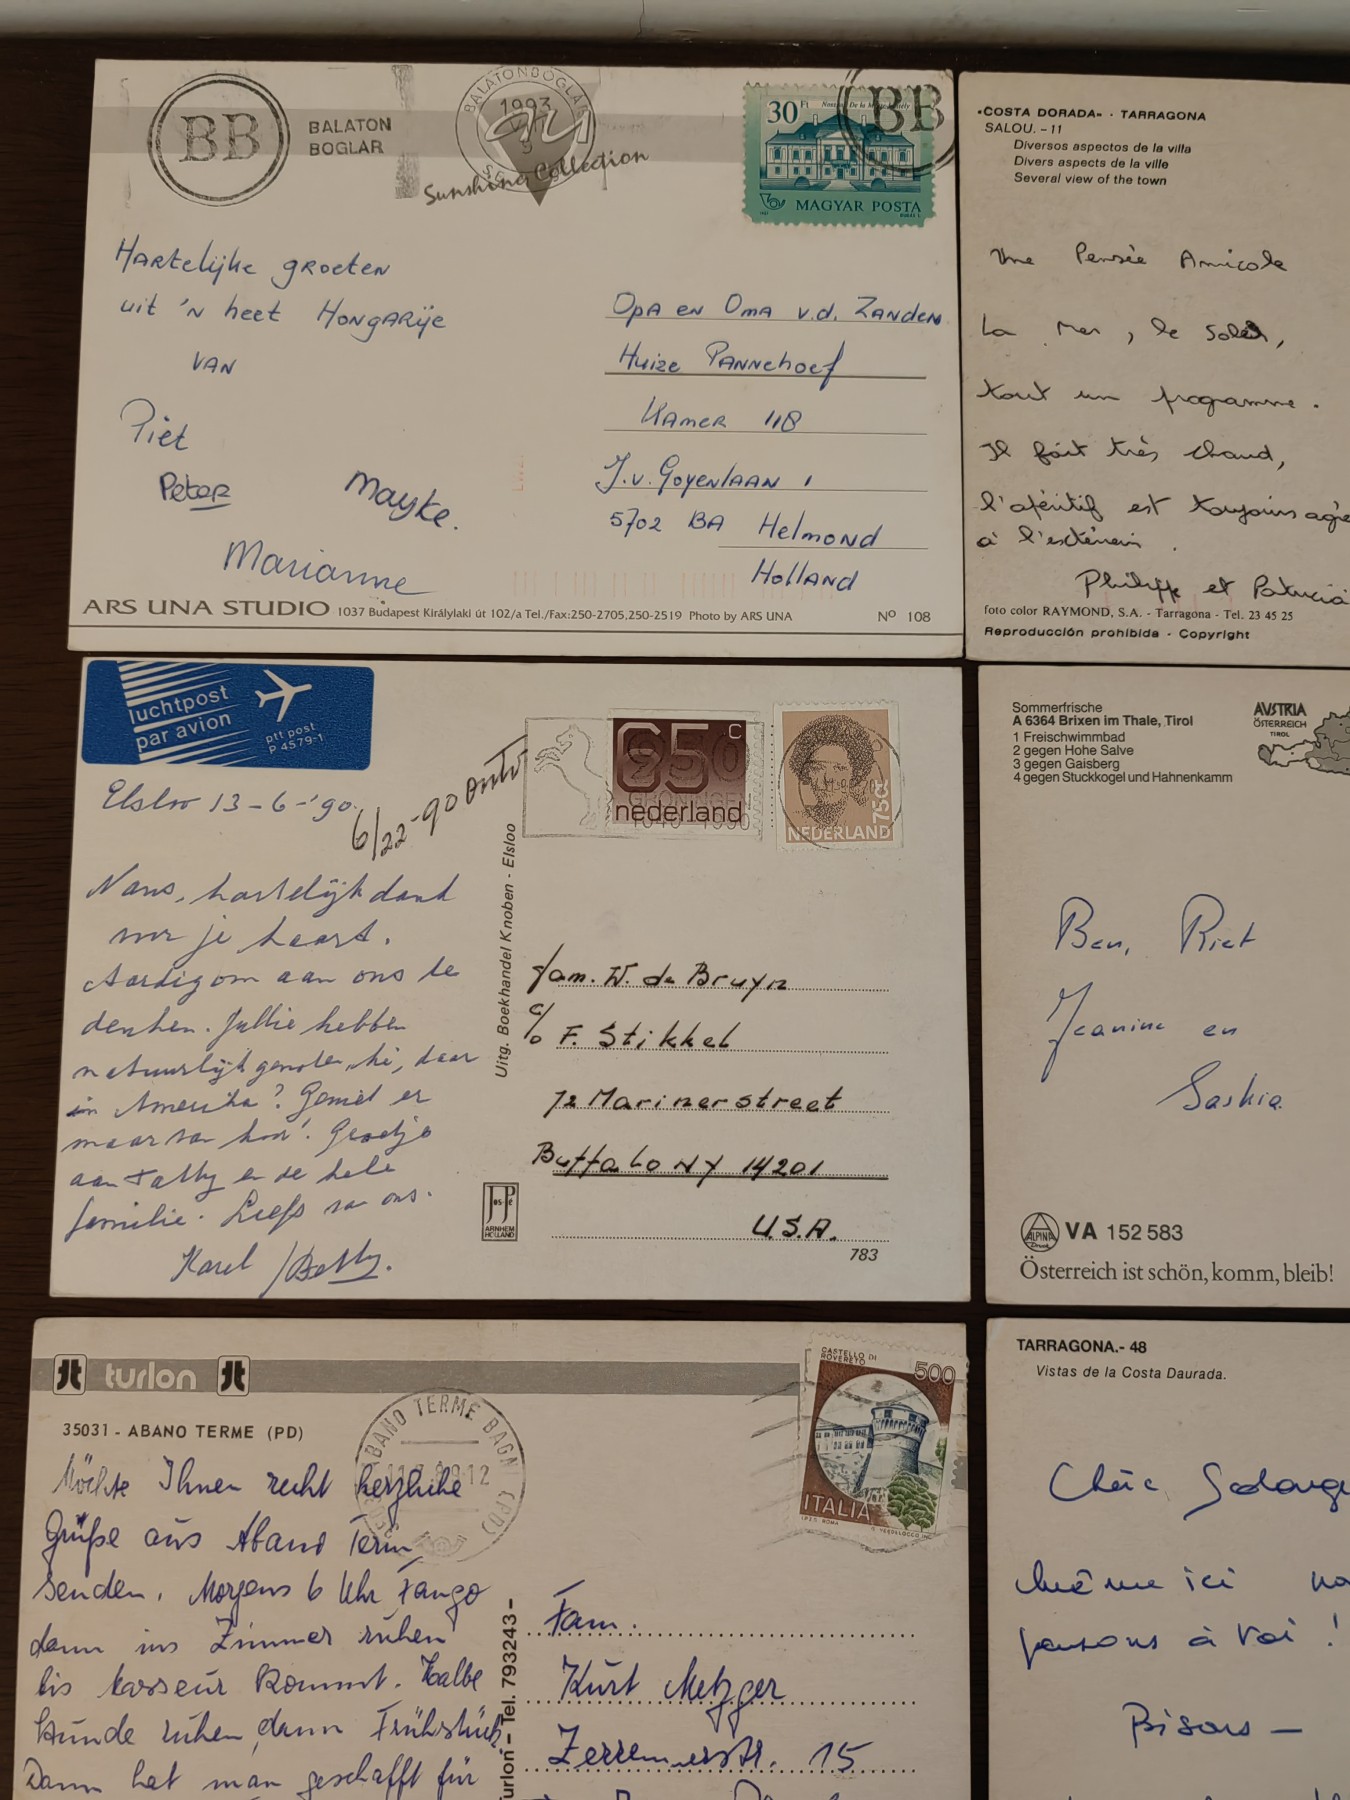 BB
BALATON
BOGLAR
BALATONBOGLÁR
1993
Sunshine Collection
30 Ft
MAGYAR POSTA
BB
HARtelijke groeten
uit 'n heet HONGARije
VAN
Piet
Peter
Mayke.
Marianne
OPA en OMA v.d. ZANDEN
Huize PANNehoef
KAMER 118
J.v. GoyenlAAN 1
5702 BA Helmond
HollAND
ARS UNA STUDIO 1037 Budapest Királylaki út 102/a Tel./Fax:250-2705,250-2519 Photo by ARS UNA
Nº 108
«COSTA DORADA» · TARRAGONA
SALOU. - 11
Diversos aspectos de la villa
Divers aspects de la ville
Several view of the town
Une Pensée Amicale
La Mer, le Soleil,
tout un programme.
Il fait très chaud,
l'apéritif est toujours agré
à l'extérieur.
Philippe et Patricia
foto color RAYMOND, S.A. - Tarragona - Tel. 23 45 25
Reproducción prohibida - Copyright
luchtpost
par avion
ptt post
P 4579-1
Elsloo 13-6-'90.
6/22-90
65 c
nederland
GRONINGEN
1040-1990
NEDERLAND 75ct
Nans, hartelijk dank
voor je kaart.
Aardig om aan ons te
denken. Jullie hebben
natuurlijk genoten, hè, daar
in Amerika? Geniet er
maar van hoor! Groetjes
aan en de hele
familie. Liefs van ons.
Karel / Betty.
Uitg. Boekhandel Knoben - Elsloo
Fam. W. de Bruyn
c/o F. Stikkel
72 Marinerstreet
Buffalo NY 14201
U.S.A.
Jos-Pé
ARNHEM
HOLLAND
783
Sommerfrische
A 6364 Brixen im Thale, Tirol
1 Freischwimmbad
2 gegen Hohe Salve
3 gegen Gaisberg
4 gegen Stuckkogel und Hahnenkamm
AUSTRIA
ÖSTERREICH
TIROL
Ben, Riet
Jeanine en
Saskia.
ALPINA
Druck
VA 152 583
Österreich ist schön, komm, bleib!
turlon
35031 - ABANO TERME (PD)
ABANO TERME BAGNI (PD)
CASTELLO DI
ROVERETO
500
ITALIA
Möchte Ihnen recht herzliche
Grüße aus Abano Term
senden. Morgens 6 Uhr Fango
dann ins Zimmer ruhen
bis Masseur kommt. Halbe
Stunde ruhen, dann Frühstück
Dann hat man geschafft für
turlon - Tel. 793243 -
Fam.
Kurt Metzger
Zerrennerstr. 15
TARRAGONA.- 48
Vistas de la Costa Daurada.
Chère Solange
même ici
pensons à toi !
Bisous -